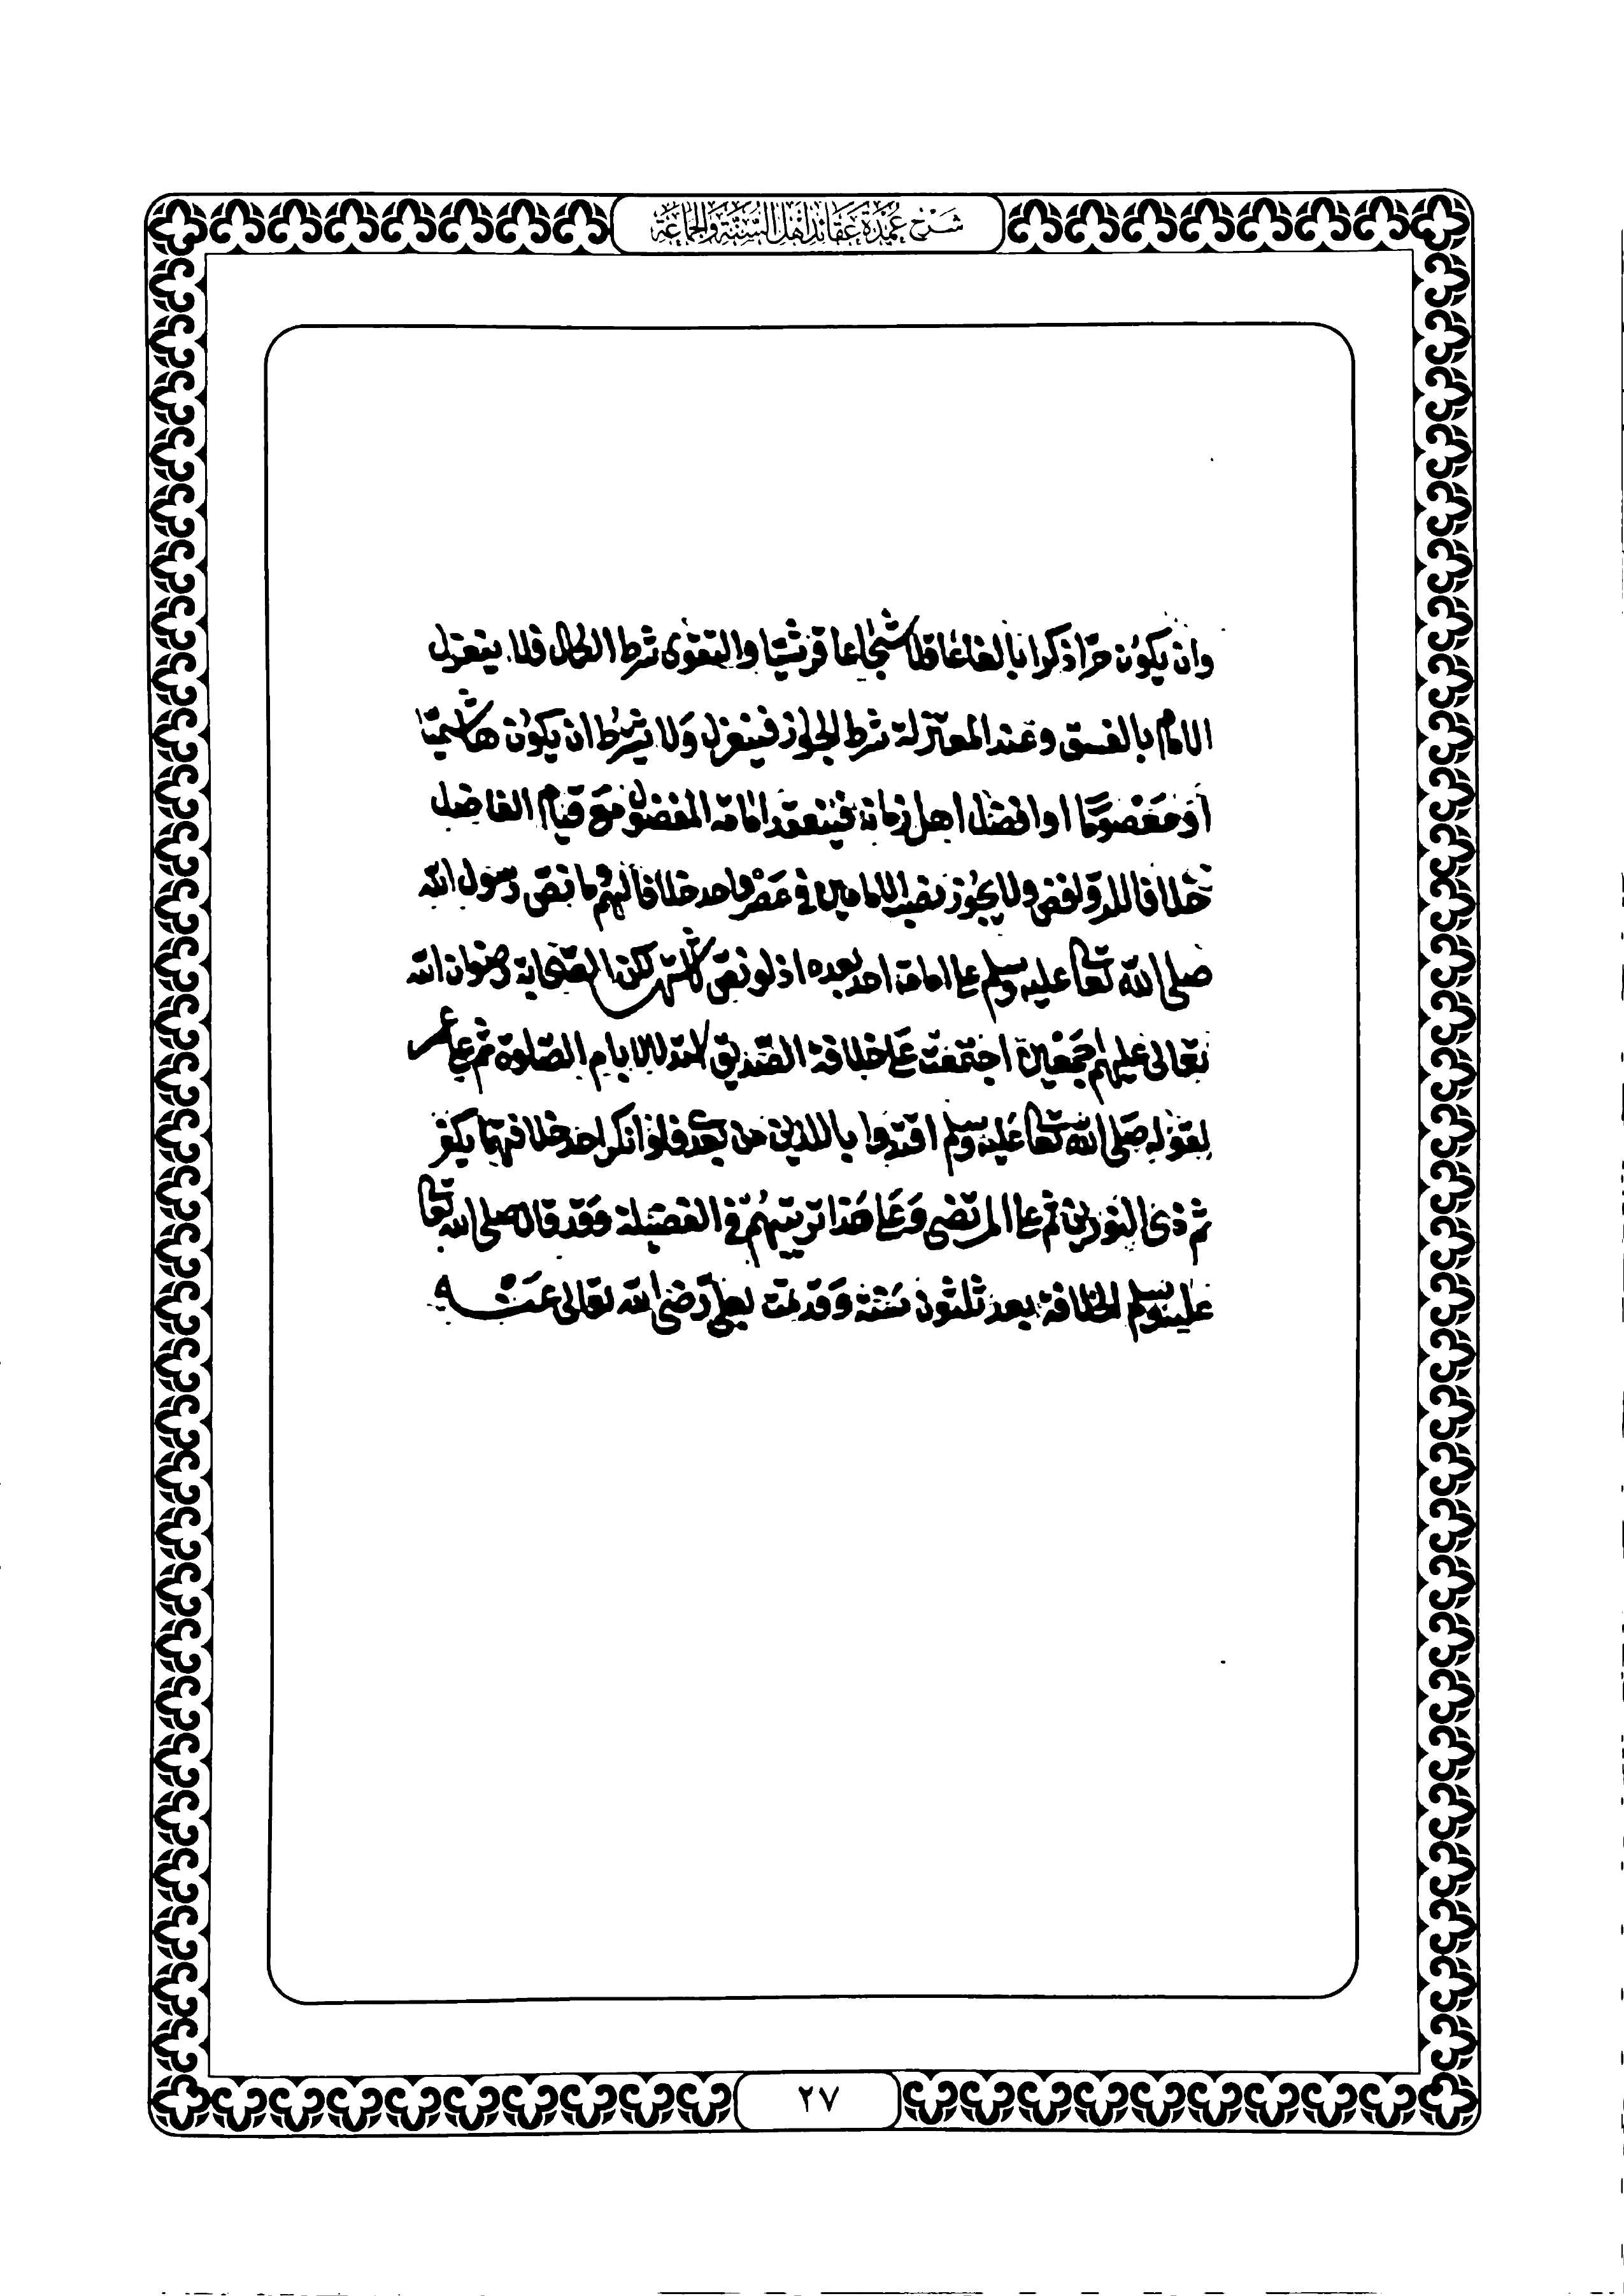 شرح عمدة عقائد أهل السنة والجماعة
وان يكون حرا ذكرا بالغا عاقلا شجاعا قرشيا والتقوى شرط الكمال فلا ينعزل
الامام بالفسق وعند المعتزلة شرط الجواز فينعزل ولا يشترط ان يكون هاشميا
او معصوما او افضل اهل زمانه فينعقد امامة المفضول مع قيام الفاضل
خلافا للروافض ولا يجوز نصب الامامين في عصر واحد خلافا لهم وما نص رسول الله
صلى الله تعالى عليه وسلم على امامة احد بعده اذ لو نص لاشتهر لكن الصحابة رضوان الله
تعالى عليهم اجمعين اجتمعت على خلافة الصديق الصلوة ثم على عمر
لقوله صلى الله تعالى عليه وسلم اقتدوا باللذين من بعدي فلو انكر احد خلافتهما يكفر
ثم ذى النورين ثم على المرتضى وعلى هذا ترتيبهم في الفضيلة وقد قال صلى الله تعالى
عليه وسلم الخلافة بعدي ثلثون سنة وقد تمت بعلي رضى الله تعالى عنه
٢٧